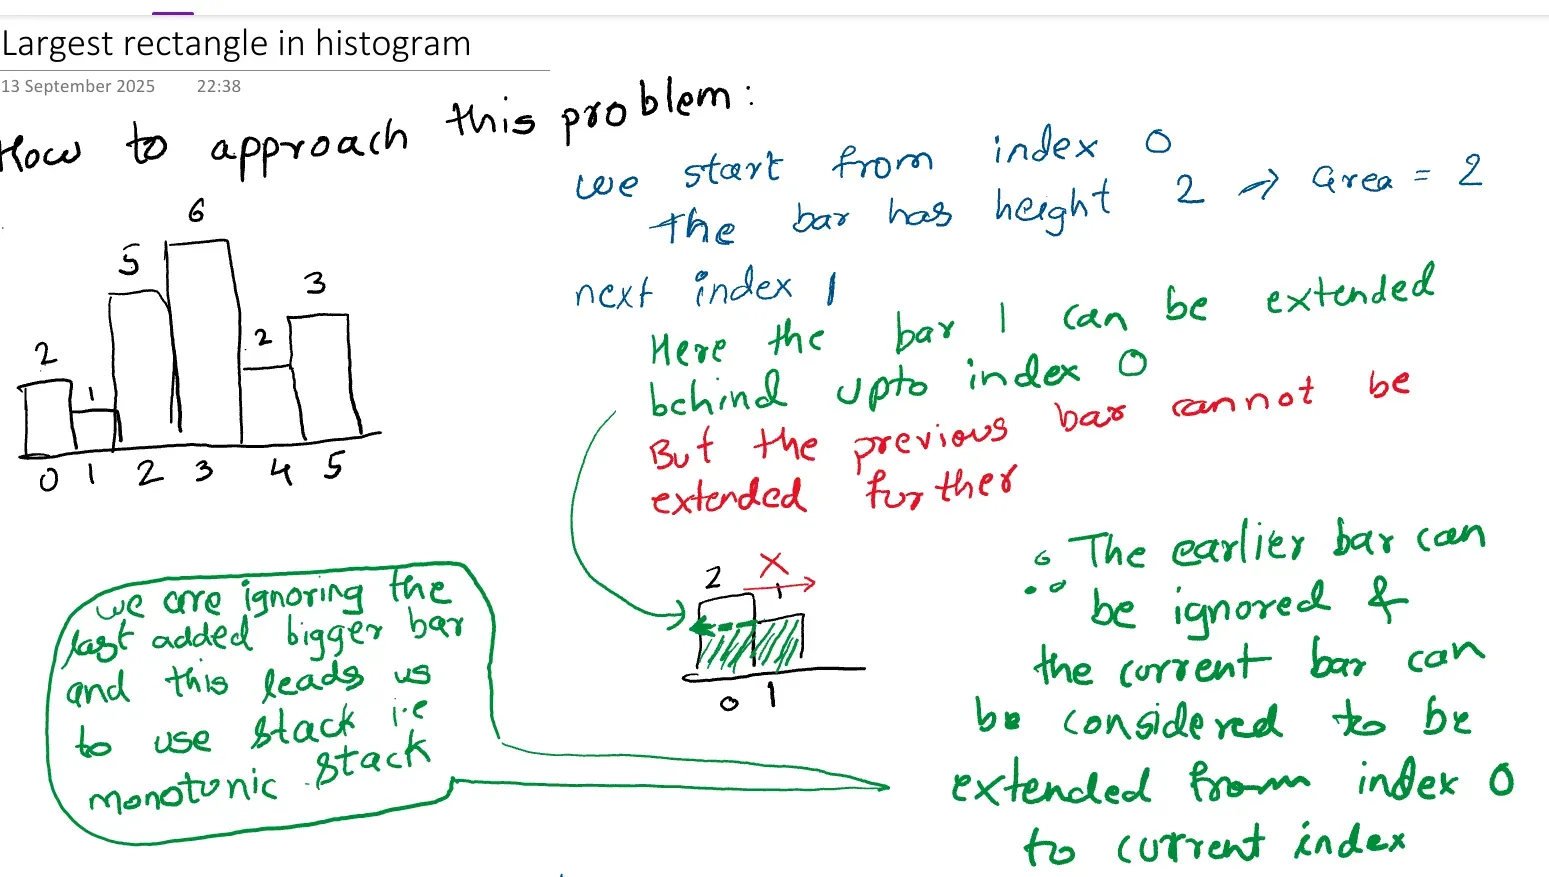 Largest rectangle in histogram
13 September 2025 22:38
How to approach this problem:
we start from index 0
the bar has height 2 → area = 2
next index 1
Here the bar 1 can be extended
behind upto index 0
But the previous bar cannot be
extended further
6
5
3
2
2
1
0 1 2 3 4 5
2 X 1
0 1
∴ The earlier bar can
be ignored &
the current bar can
be considered to be
extended from index 0
to current index
we are ignoring the
last added bigger bar
and this leads us
to use stack i.e
monotonic stack